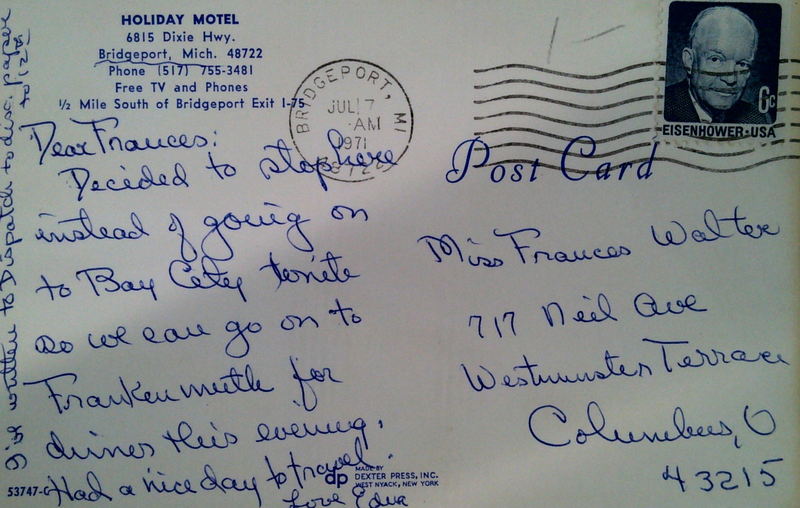 HOLIDAY MOTEL
6815 Dixie Hwy.
Bridgeport, Mich. 48722
Phone (517) 755-3481
Free TV and Phones
1/2 Mile South of Bridgeport Exit I-75
BRIDGEPORT, MI
JUL 7
AM
1971
EISENHOWER·USA
6c
Post Card
Dear Frances:
Decided to stop here
instead of going on
to Bay City tonite
so we can go on to
Frankenmuth for
dinner this evening.
Had a nice day to travel.
Love Edna
written to Dispatch to disc. paper
to 12th
Miss Frances Walter
717 Neil Ave
Westminster Terrace
Columbus, O
43215
53747-C
dp
MADE BY
DEXTER PRESS, INC.
WEST NYACK, NEW YORK